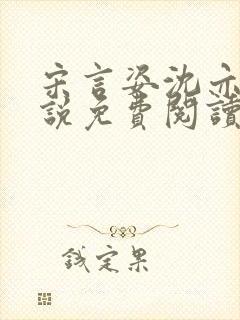 宋言姿沈亦
說免費閱讀
錢定果